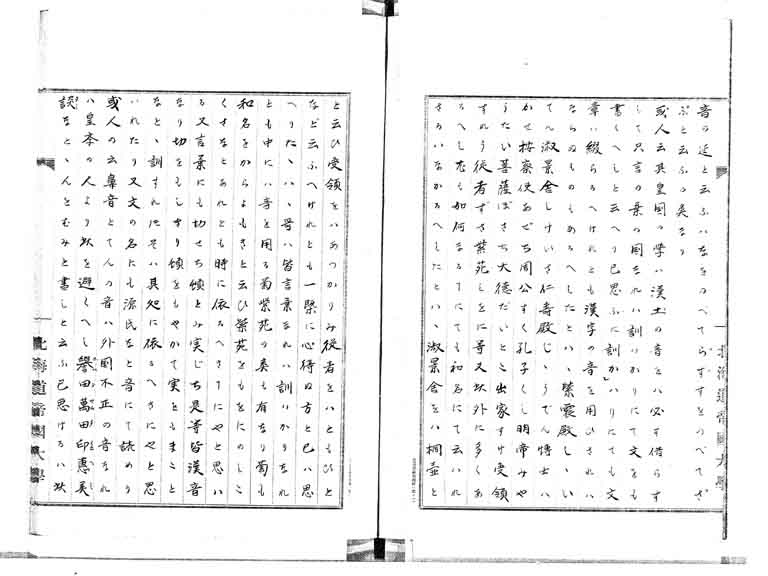 音の延と云ふハなをのべてらずすをのべてざ
ぶと云ふの美なり
或人云其皇国の学ハ漢土の音をハ必す借らす
して只言の葉の国なれハ訓はかりにて文をも
書くへしと云へり己思ふに訓かハりにても文
章ハ綴らるへけれとも漢字の音を用ひされハ
ならぬものもあるへしたとハヽ紫宸殿しヽい
てん淑景舎しけいさ仁寿殿じヽうでん博士ハ
かせ按察使あぜち周公すく孔子くし明帝みや
うたい菩薩ぼさち大徳だいとこ出家すけ受領
すれう従者ずさ紫苑しをに等又此外に多くあ
るへし左も如何なるうにても和名にて云ハれ
さるハなかるへしたとハヽ淑景舎をハ桐壺と
と云ひ受領をハあつかりみ従者をハともひと
など云ふへけれとも一槩に心得ぬ方と己ハ思
へりたヽハヽ哥ハ皆言葉なれハ訓はかりなれ
とも中にハ音を用る菊紫苑の類も有なり菊も
和名をからよもきと云ひ紫苑をもをにのしこ
くさなとあれとも時に依るへき事にやと思ハ
る又言葉にも切せち頻とみ実じち是等皆漢音
なり切をもしきり頻をもやかて実ともまこと
なとヽ訓すれ共そハ其処に依るへきにやと思
いれたり又文の名にも源氏をと音にて読めり
或人の云鼻音とてんの音ハ外国不正の音なれ
ハ皇本の人より此を避くへし譽田萬田印惠美
談なとヽんとむみと書しと云ふ已思けるハ此
北海道帝國大學
北海道帝國大學